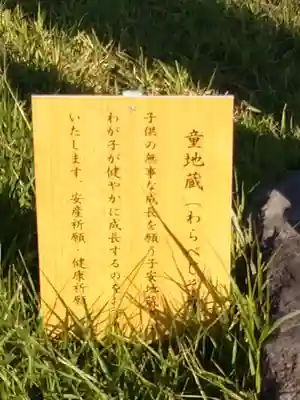 童地蔵(わらべじ
子供の無事な成長を願う子安地蔵
わが子が健やかに成長するのを
いたします。安産祈願 健康祈願